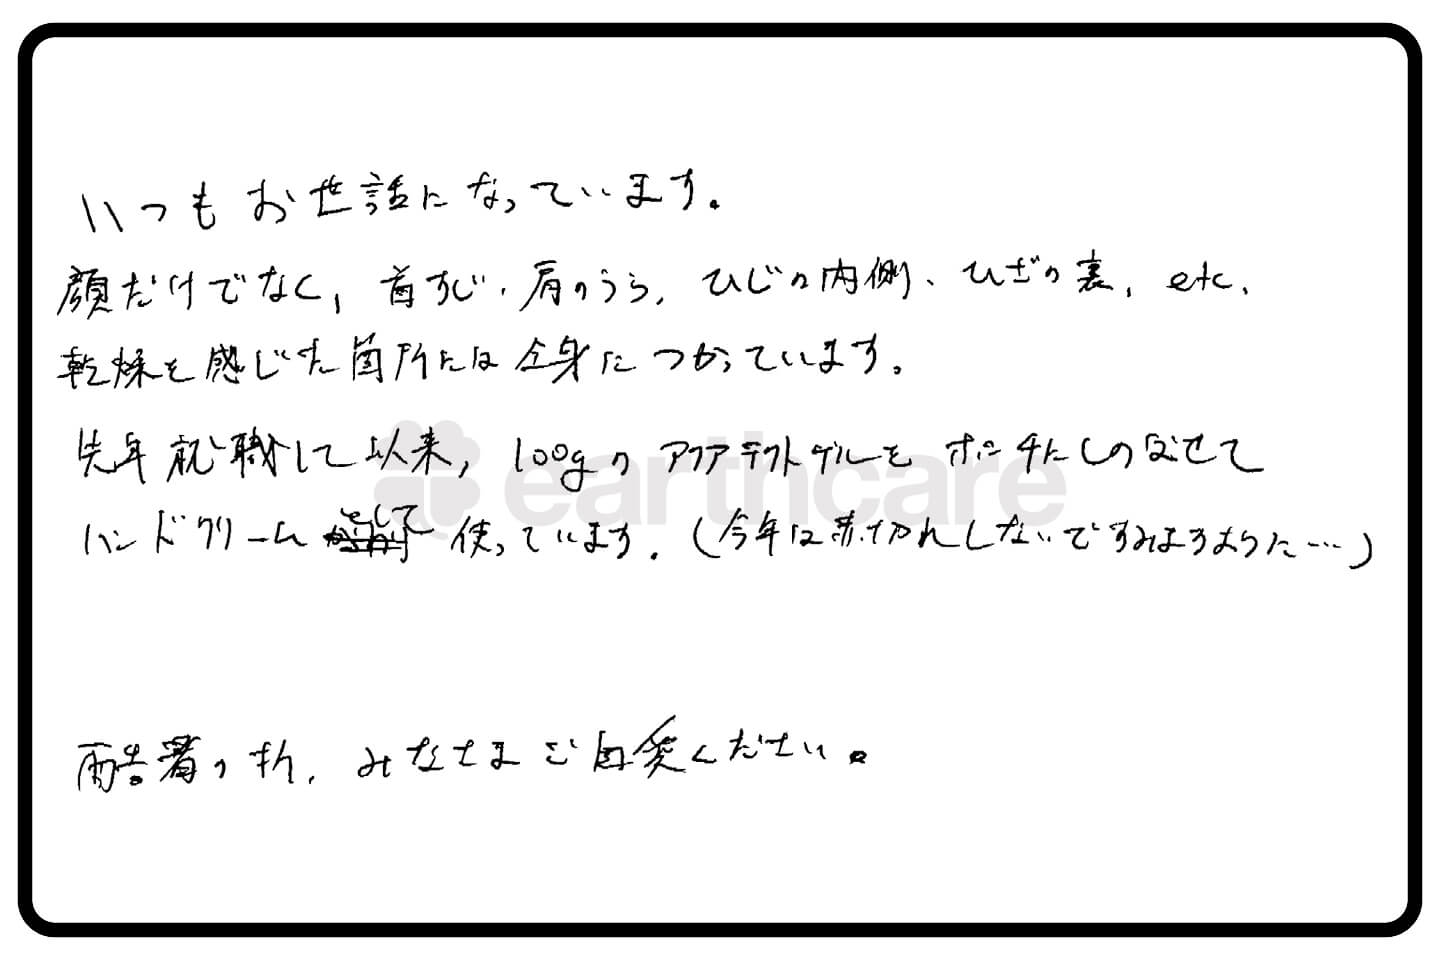 いつもお世話になっています。
顔だけでなく、首すじ、肩のうら、ひじの内側、ひざの裏、etc、
乾燥を感じた箇所には全身につかっています。
先年就職して以来、100gのアクアテクトゲルをポーチにしのばせて
ハンドクリームとして使っています。(今年は赤切れしないですみますように…)
酷暑の折、みなさまご自愛ください。
earthcare